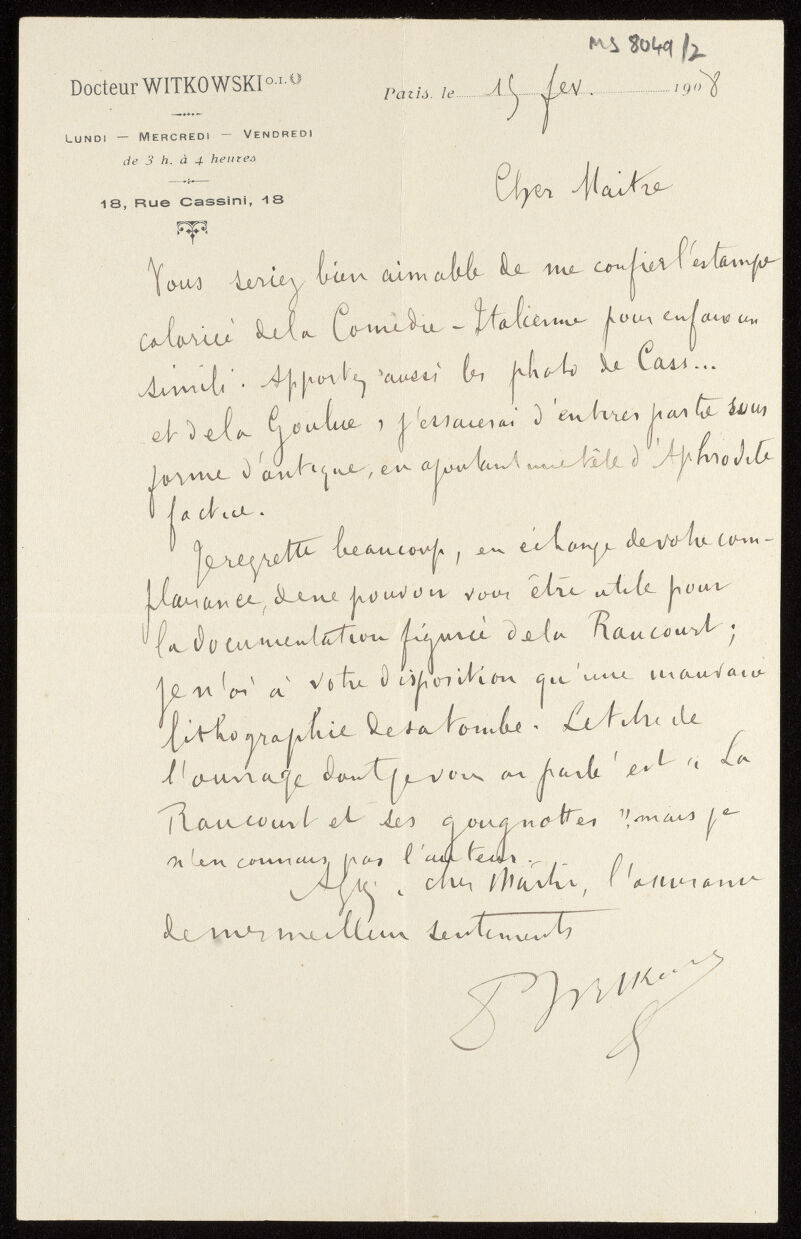 MS 8049/2
Docteur WITKOWSKI O.I.
Paris, le 15 fev. 1908
LUNDI — MERCREDI — VENDREDI
de 3 h. à 4 heures
18, Rue Cassini, 18
Cher Maitre
Vous seriez bien aimable de me confier l'estampe
coloriée de la Comédie-Italienne pour en faire un
simili. Apportez aussi les photo de Cass...
et de la Goulue, j'essaierai d'en tirer partie sous
forme d'antique, en ajoutant une tête d'Aphrodite
factice.
Je regrette beaucoup, en échange de votre com-
plaisance, de ne pouvoir vous être utile pour
la documentation figurée de la Raucourt;
je n'ai à votre disposition qu'une mauvaise
lithographie de sa tombe. Le titre de
l'ouvrage dont je vous ai parlé est "La
Raucourt et ses gougnottes", mais je
n'en connais pas l'auteur.
Agréez, cher Maître, l'assurance
de mes meilleurs sentiments
Dr Witkowski